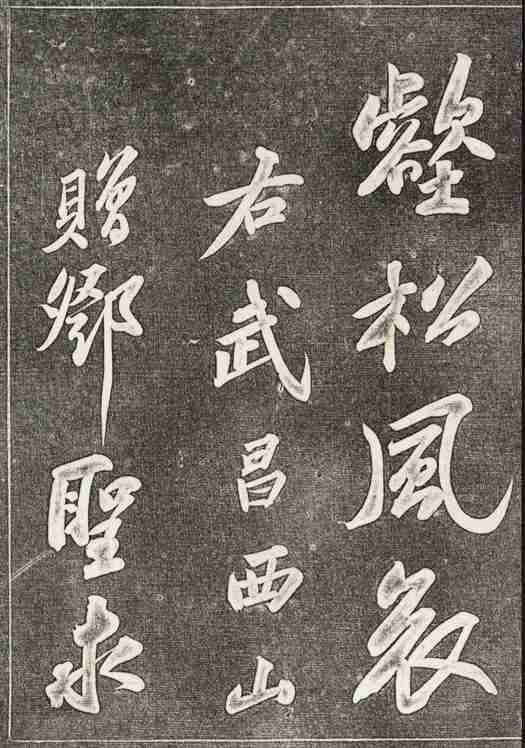 壑松風哀
右武昌西山
贈鄧聖求